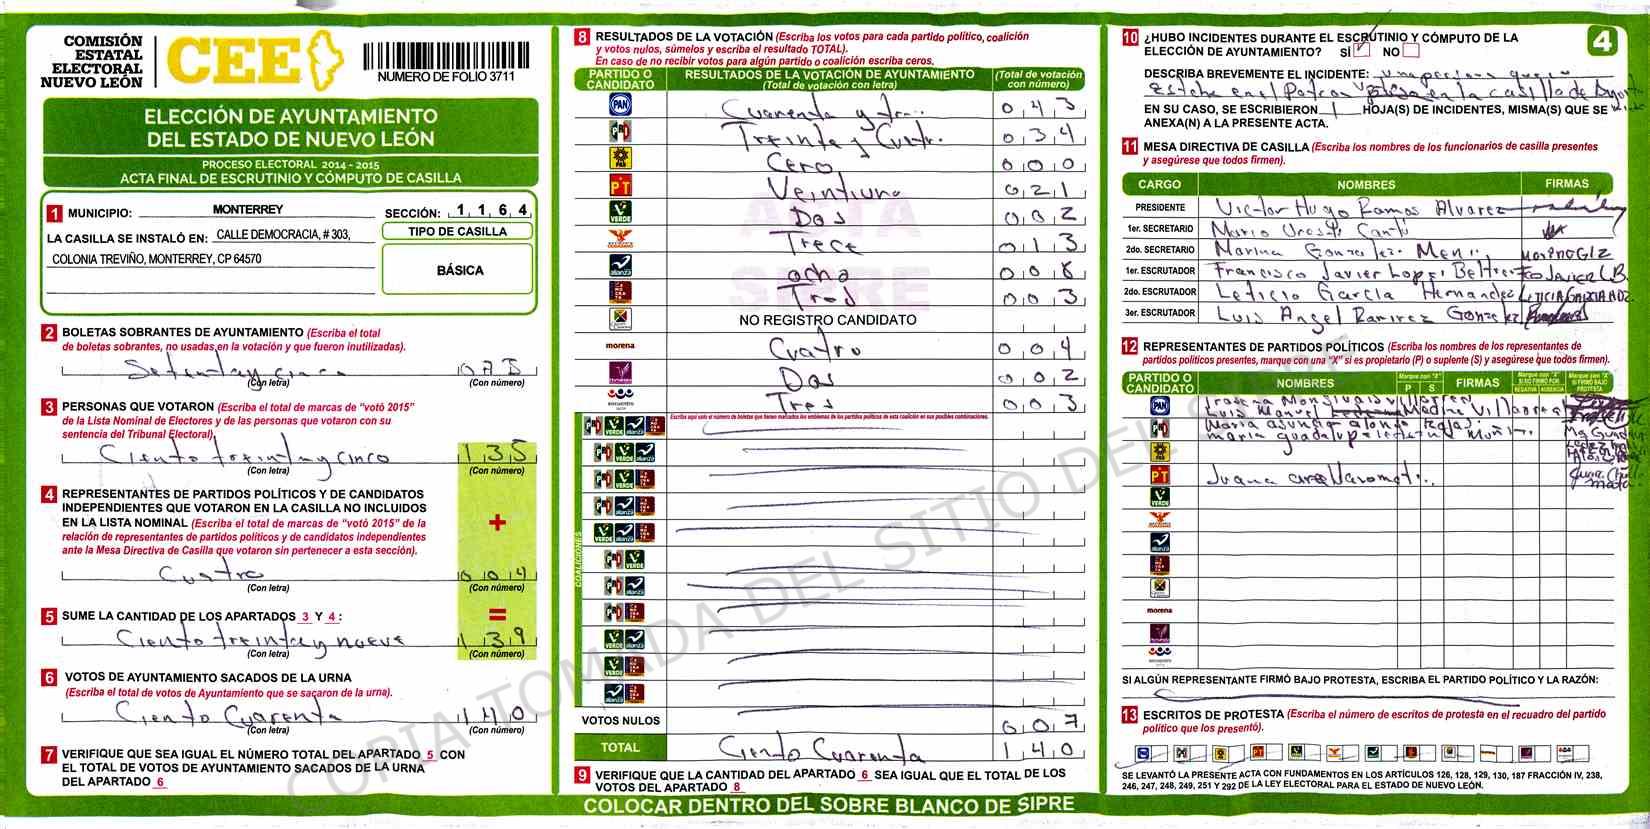 COMISIÓN
ESTATAL
ELECTORAL
NUEVO LEÓN
CEE
NUMERO DE FOLIO 3711
ELECCIÓN DE AYUNTAMIENTO
DEL ESTADO DE NUEVO LEÓN
PROCESO ELECTORAL 2014 - 2015
ACTA FINAL DE ESCRUTINIO Y CÓMPUTO DE CASILLA
1 MUNICIPIO: MONTERREY SECCIÓN: 1 1 6 4
LA CASILLA SE INSTALÓ EN: CALLE DEMOCRACIA, # 303,
COLONIA TREVIÑO, MONTERREY, CP 64570
TIPO DE CASILLA
BÁSICA
2 BOLETAS SOBRANTES DE AYUNTAMIENTO (Escriba el total
de boletas sobrantes, no usadas en la votación y que fueron inutilizadas).
Setenta y cinco 075
(Con letra) (Con número)
3 PERSONAS QUE VOTARON (Escriba el total de marcas de "votó 2015"
de la Lista Nominal de Electores y de las personas que votaron con su
sentencia del Tribunal Electoral).
Ciento treinta y cinco 135
(Con letra) (Con número)
4 REPRESENTANTES DE PARTIDOS POLÍTICOS Y DE CANDIDATOS
INDEPENDIENTES QUE VOTARON EN LA CASILLA NO INCLUIDOS
EN LA LISTA NOMINAL (Escriba el total de marcas de "votó 2015" de la
relación de representantes de partidos políticos y de candidatos independientes
ante la Mesa Directiva de Casilla que votaron sin pertenecer a esta sección).
+
Cuatro 004
(Con letra) (Con número)
5 SUME LA CANTIDAD DE LOS APARTADOS 3 Y 4 :
=
Ciento treinta y nueve 139
(Con letra) (Con número)
6 VOTOS DE AYUNTAMIENTO SACADOS DE LA URNA
(Escriba el total de votos de Ayuntamiento que se sacaron de la urna).
Ciento Cuarenta 140
(Con letra) (Con número)
7 VERIFIQUE QUE SEA IGUAL EL NÚMERO TOTAL DEL APARTADO 5 CON
EL TOTAL DE VOTOS DE AYUNTAMIENTO SACADOS DE LA URNA
DEL APARTADO 6
8 RESULTADOS DE LA VOTACIÓN (Escriba los votos para cada partido político, coalición
y votos nulos, súmelos y escriba el resultado TOTAL).
En caso de no recibir votos para algún partido o coalición escriba ceros.
PARTIDO O CANDIDATO RESULTADOS DE LA VOTACIÓN DE AYUNTAMIENTO (Total de votación con letra) (Total de votación con número)
PAN Cuarenta y tr.. 043
PRD Treinta y Cuatr. 034
PRD Cero 000
PT Veintiuno 021
VERDE Dos 002
Trece 013
alianza ocho 008
Tres 003
NO REGISTRO CANDIDATO
morena Cuatro 004
Dos 002
Tres 003
COALICIONES
Escriba aquí solo el número de boletas que tienen marcados los emblemas de los partidos políticos de esta coalición en sus posibles combinaciones.
VOTOS NULOS 007
TOTAL Ciento Cuarenta 140
9 VERIFIQUE QUE LA CANTIDAD DEL APARTADO 6 SEA IGUAL QUE EL TOTAL DE LOS
VOTOS DEL APARTADO 8
COLOCAR DENTRO DEL SOBRE BLANCO DE SIPRE
10 ¿HUBO INCIDENTES DURANTE EL ESCRUTINIO Y CÓMPUTO DE LA
ELECCIÓN DE AYUNTAMIENTO? SÍ NO
4
DESCRIBA BREVEMENTE EL INCIDENTE: una persona
en la casilla de
EN SU CASO, SE ESCRIBIERON 1 HOJA(S) DE INCIDENTES, MISMA(S) QUE SE
ANEXA(N) A LA PRESENTE ACTA.
11 MESA DIRECTIVA DE CASILLA (Escriba los nombres de los funcionarios de casilla presentes
y asegúrese que todos firmen).
CARGO NOMBRES FIRMAS
PRESIDENTE Victor Hugo Ramos Alvarez
1er. SECRETARIO Mario Cantu
2do. SECRETARIO Marina Gonzalez
1er. ESCRUTADOR Francisco Javier Lopez Beltran FCO JAVIER L.B.
2do. ESCRUTADOR Leticia García Hernandez LETICIA GARCIA HDZ.
3er. ESCRUTADOR Luis Angel Ramirez Gonzalez
12 REPRESENTANTES DE PARTIDOS POLÍTICOS (Escriba los nombres de los representantes de
partidos políticos presentes, marque con una "X" si es propietario (P) o suplente (S) y asegúrese que todos firmen).
PARTIDO O CANDIDATO NOMBRES Marque con "X" P S FIRMAS Marque con "X" SI NO FIRMÓ POR NEGATIVA AUSENCIA Marque con "X" SI FIRMÓ BAJO PROTESTA
PAN Monsivais
Luis Manuel Medina Villarreal
Maria asuncion alonso Rojas
maria guadalupe
PT Juana
VERDE
alianza
morena
SI ALGÚN REPRESENTANTE FIRMÓ BAJO PROTESTA, ESCRIBA EL PARTIDO POLÍTICO Y LA RAZÓN:
13 ESCRITOS DE PROTESTA (Escriba el número de escritos de protesta en el recuadro del partido
político que los presentó).
SE LEVANTÓ LA PRESENTE ACTA CON FUNDAMENTOS EN LOS ARTÍCULOS 126, 128, 129, 130, 187 FRACCIÓN IV, 238,
246, 247, 248, 249, 251 Y 292 DE LA LEY ELECTORAL PARA EL ESTADO DE NUEVO LEÓN.
COPIA TOMADA DEL SITIO DEL SIPRE